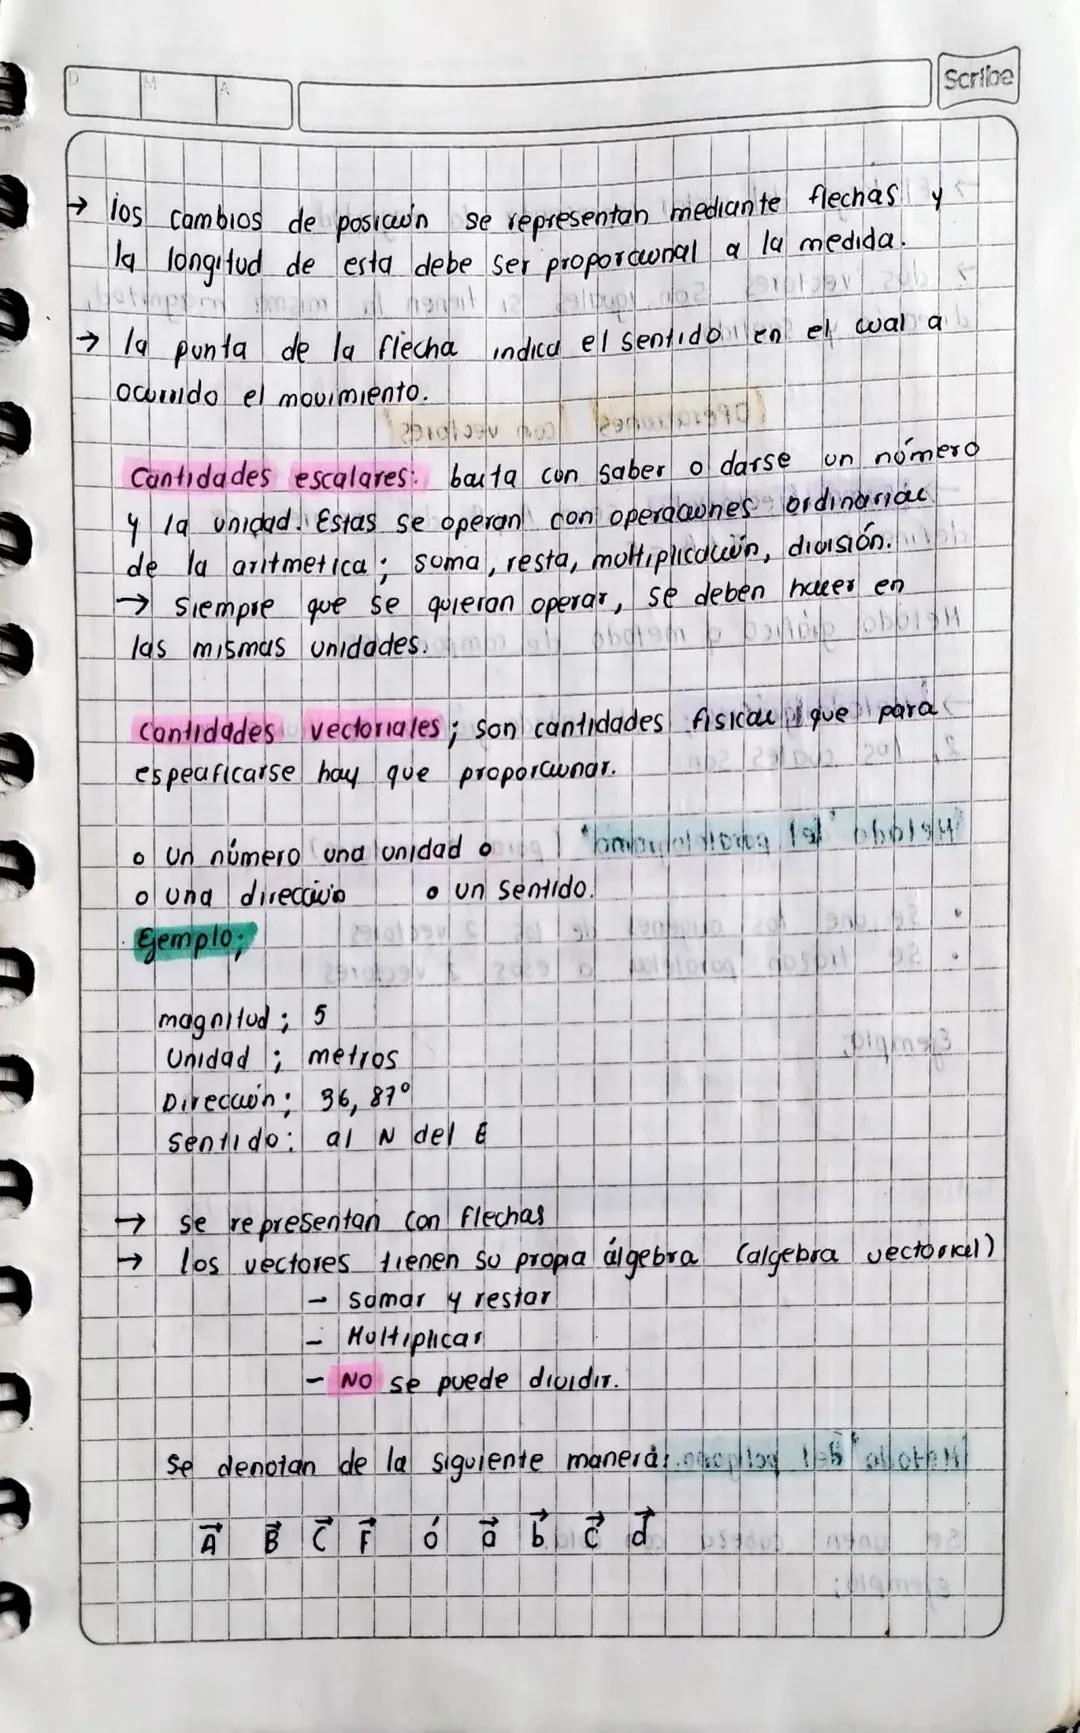 D M A
Scribe
→ los cambios de posición se representan mediante flechas y
la longitud de esta debe ser proporcional a la medida.
→ la punta de la flecha indica el sentido en el cual a
ocurrido el movimiento.
Cantidades escalares: basta con saber o darse un número
y la unidad. Estas se operan con operaciones ordinarias
de la aritmetica; suma, resta, multiplicación, división.
→ siempre que se quieran operar, se deben hacer en
las mismas unidades.
Cantidades vectoriales; son cantidades fisicas que para
especificarse hay que proporcionar.
o un número una unidad o
o una dirección • un sentido.
Ejemplo;
magnitud; 5
Unidad; metros
Dirección; 36,87°
sentido: al N del E
→ se representan con flechas
→ los vectores tienen su propia álgebra (algebra vectorial)
- sumar y restar
- Multiplicar
- NO se puede dividir.
se denotan de la siguiente manera:
A⃗ B⃗ C⃗ F⃗ ó a⃗ b⃗ c⃗ d⃗